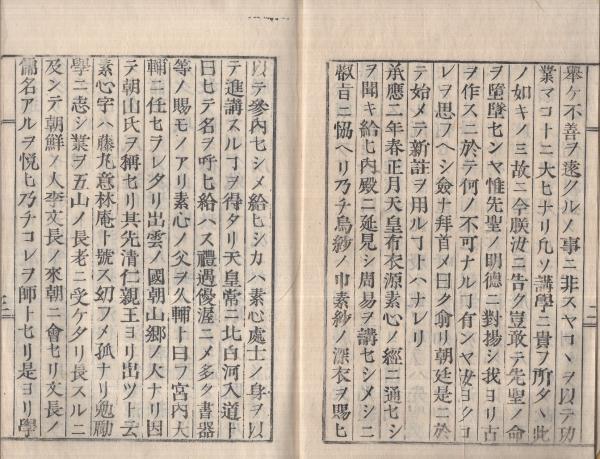 舉ケ不善ヲ遠クルノ事ニ非スヤコヽヲ以テ功
業マコトニ大ヒナリ凡ソ講學ニ貴フ所タヽ此
ノ如キノミ故ニ今朕汝ニ告ク豈敢テ先聖ノ命
ヲ墮墜センヤ惟先聖ノ明德ニ對揚シ我ヨリ古
ヲ作スニ於テ何ノ不可ナルヿ有ンヤ汝ヨクコ
レヲ思フヘシ僉ナ拜首メ曰ク俞リ朝廷是ニ於
テ始メテ新註ヲ用ルヿトハナレリ
承應二年春正月天皇布衣源素心ノ經ニ通セシ
ヲ聞キ給ヒ内殿ニ延見シ周易ヲ講セシメシニ
叡旨ニ恊ヘリ乃チ烏紗ノ巾素紗ノ深衣ヲ賜ヒ
以テ參内セシメ給ヒシカハ素心處士ノ身ヲ以
テ進講スルヿヲ得タリ天皇常ニ北白河入道ト
曰ヒテ名ヲ呼ヒ給ハス禮遇優渥ニメ多ク書器
等ノ賜モノアリ素心ノ父ヲ久輔ト曰フ宮内大
輔ニ任セラレタリ出雲ノ國朝山郷ノ人ナリ因
テ朝山氏ヲ稱セリ其先清仁親王ヨリ出ツト云
素心字ハ藤丸意林庵ト號ス幼フメ孤ナリ勉勵
學ニ志シ業ヲ五山ノ長老ニ受ケタリ長スルニ
及ンテ朝鮮ノ人李文長ノ來朝ニ會セリ文長ノ
儒名アルヲ悦ヒ乃チコレヲ師トセリ是ヨリ學
二
三